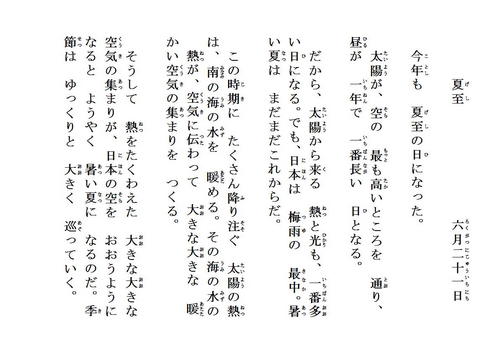 夏至　六月二十一日
今年も　夏至の日になった。
太陽が、空の　最も高いところを　通り、
昼が　一年で　一番長い　日となる。
だから、太陽から来る　熱と光も、一番多
い日になる。でも、日本は　梅雨の　最中。暑
い夏は　まだまだこれからだ。
この時期に　たくさん降り注ぐ　太陽の熱
は、南の海の水を　暖める。その海の水の
熱が、空気に伝わって　大きな大きな　暖
かい空気の集まりを　つくる。
そうして　熱をたくわえた　大きな大きな
空気の集まりが、日本の空を　おおうように
なると　ようやく　暑い夏に　なるのだ。季
節は　ゆっくりと　大きく　巡っていく。